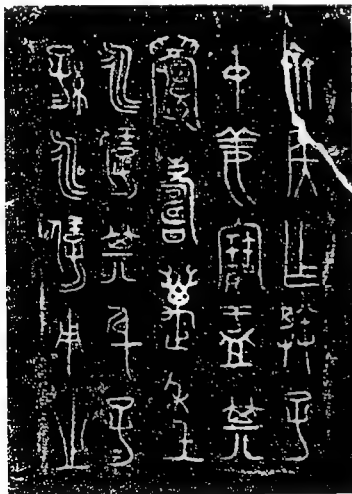 侯乍子
中姜寶其
眉壽萬年
永保其身子
孫永保用之